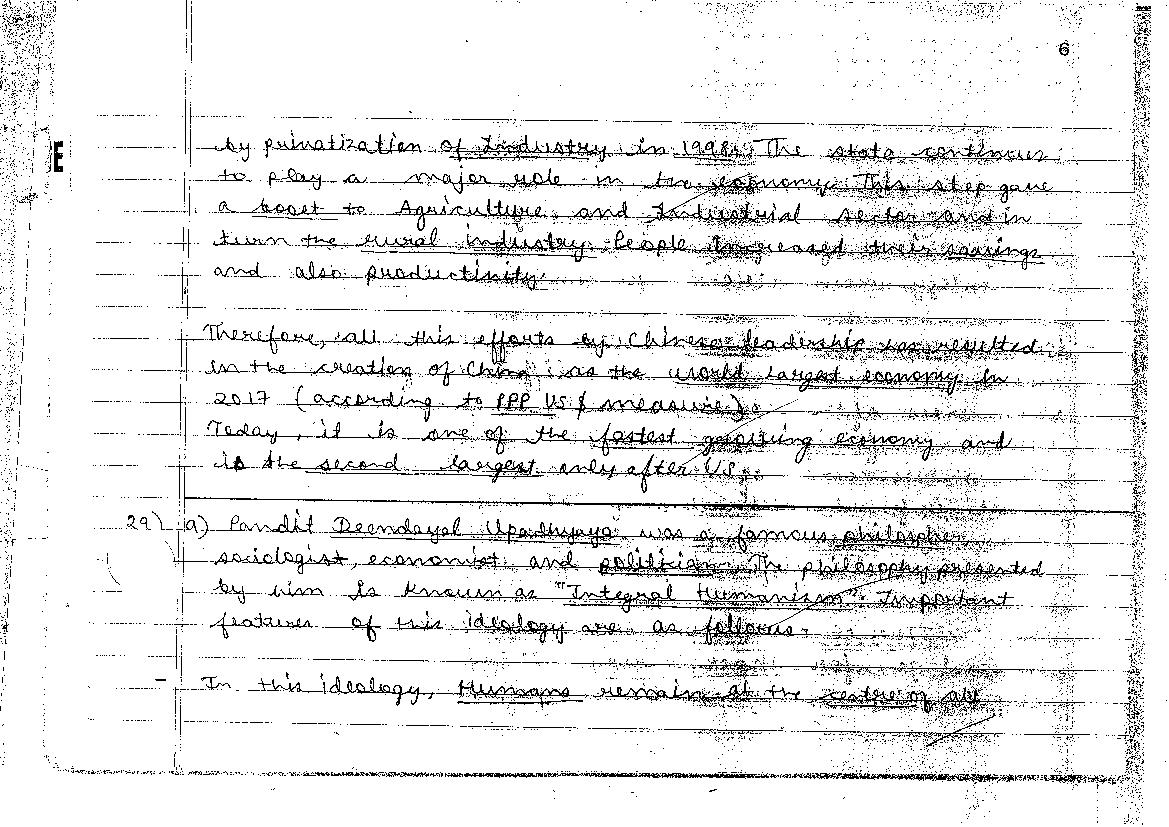 6
E
by privatization of Industry in 1998. The state continues
to play a major role in the economy. This step gave
a boost to Agriculture and Industrial sector and in
turn the rural industry. People Increased their savings
and also productivity.
Therefore, all this efforts by Chinese leadership has resulted
in the creation of China as the world largest economy In
2017 (according to PPP US $ measure).
Today, it is one of the fastest growing economy and
is the second largest only after US.
29) a) Pandit Deendayal Upadhyaya was a famous philospher
sociologist, economist and politician. The philosophy presented
by him is known as "Integral Humanism". Important
features of this ideology are as follows.
- In this ideology, Humans remain at the centre of all